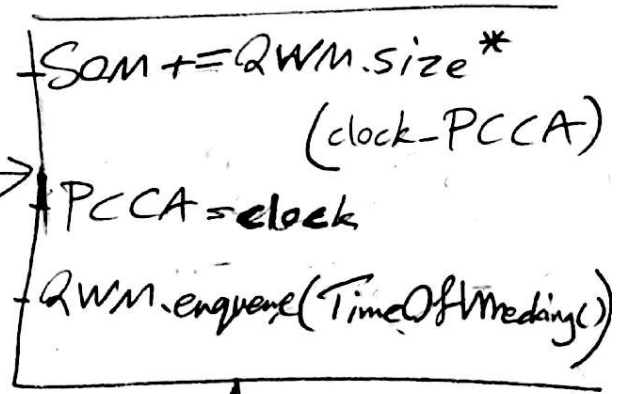 - SQM += QWM.size *
(clock - PCCA)
- PCCA = clock
- QWM.enqueue(TimeOf